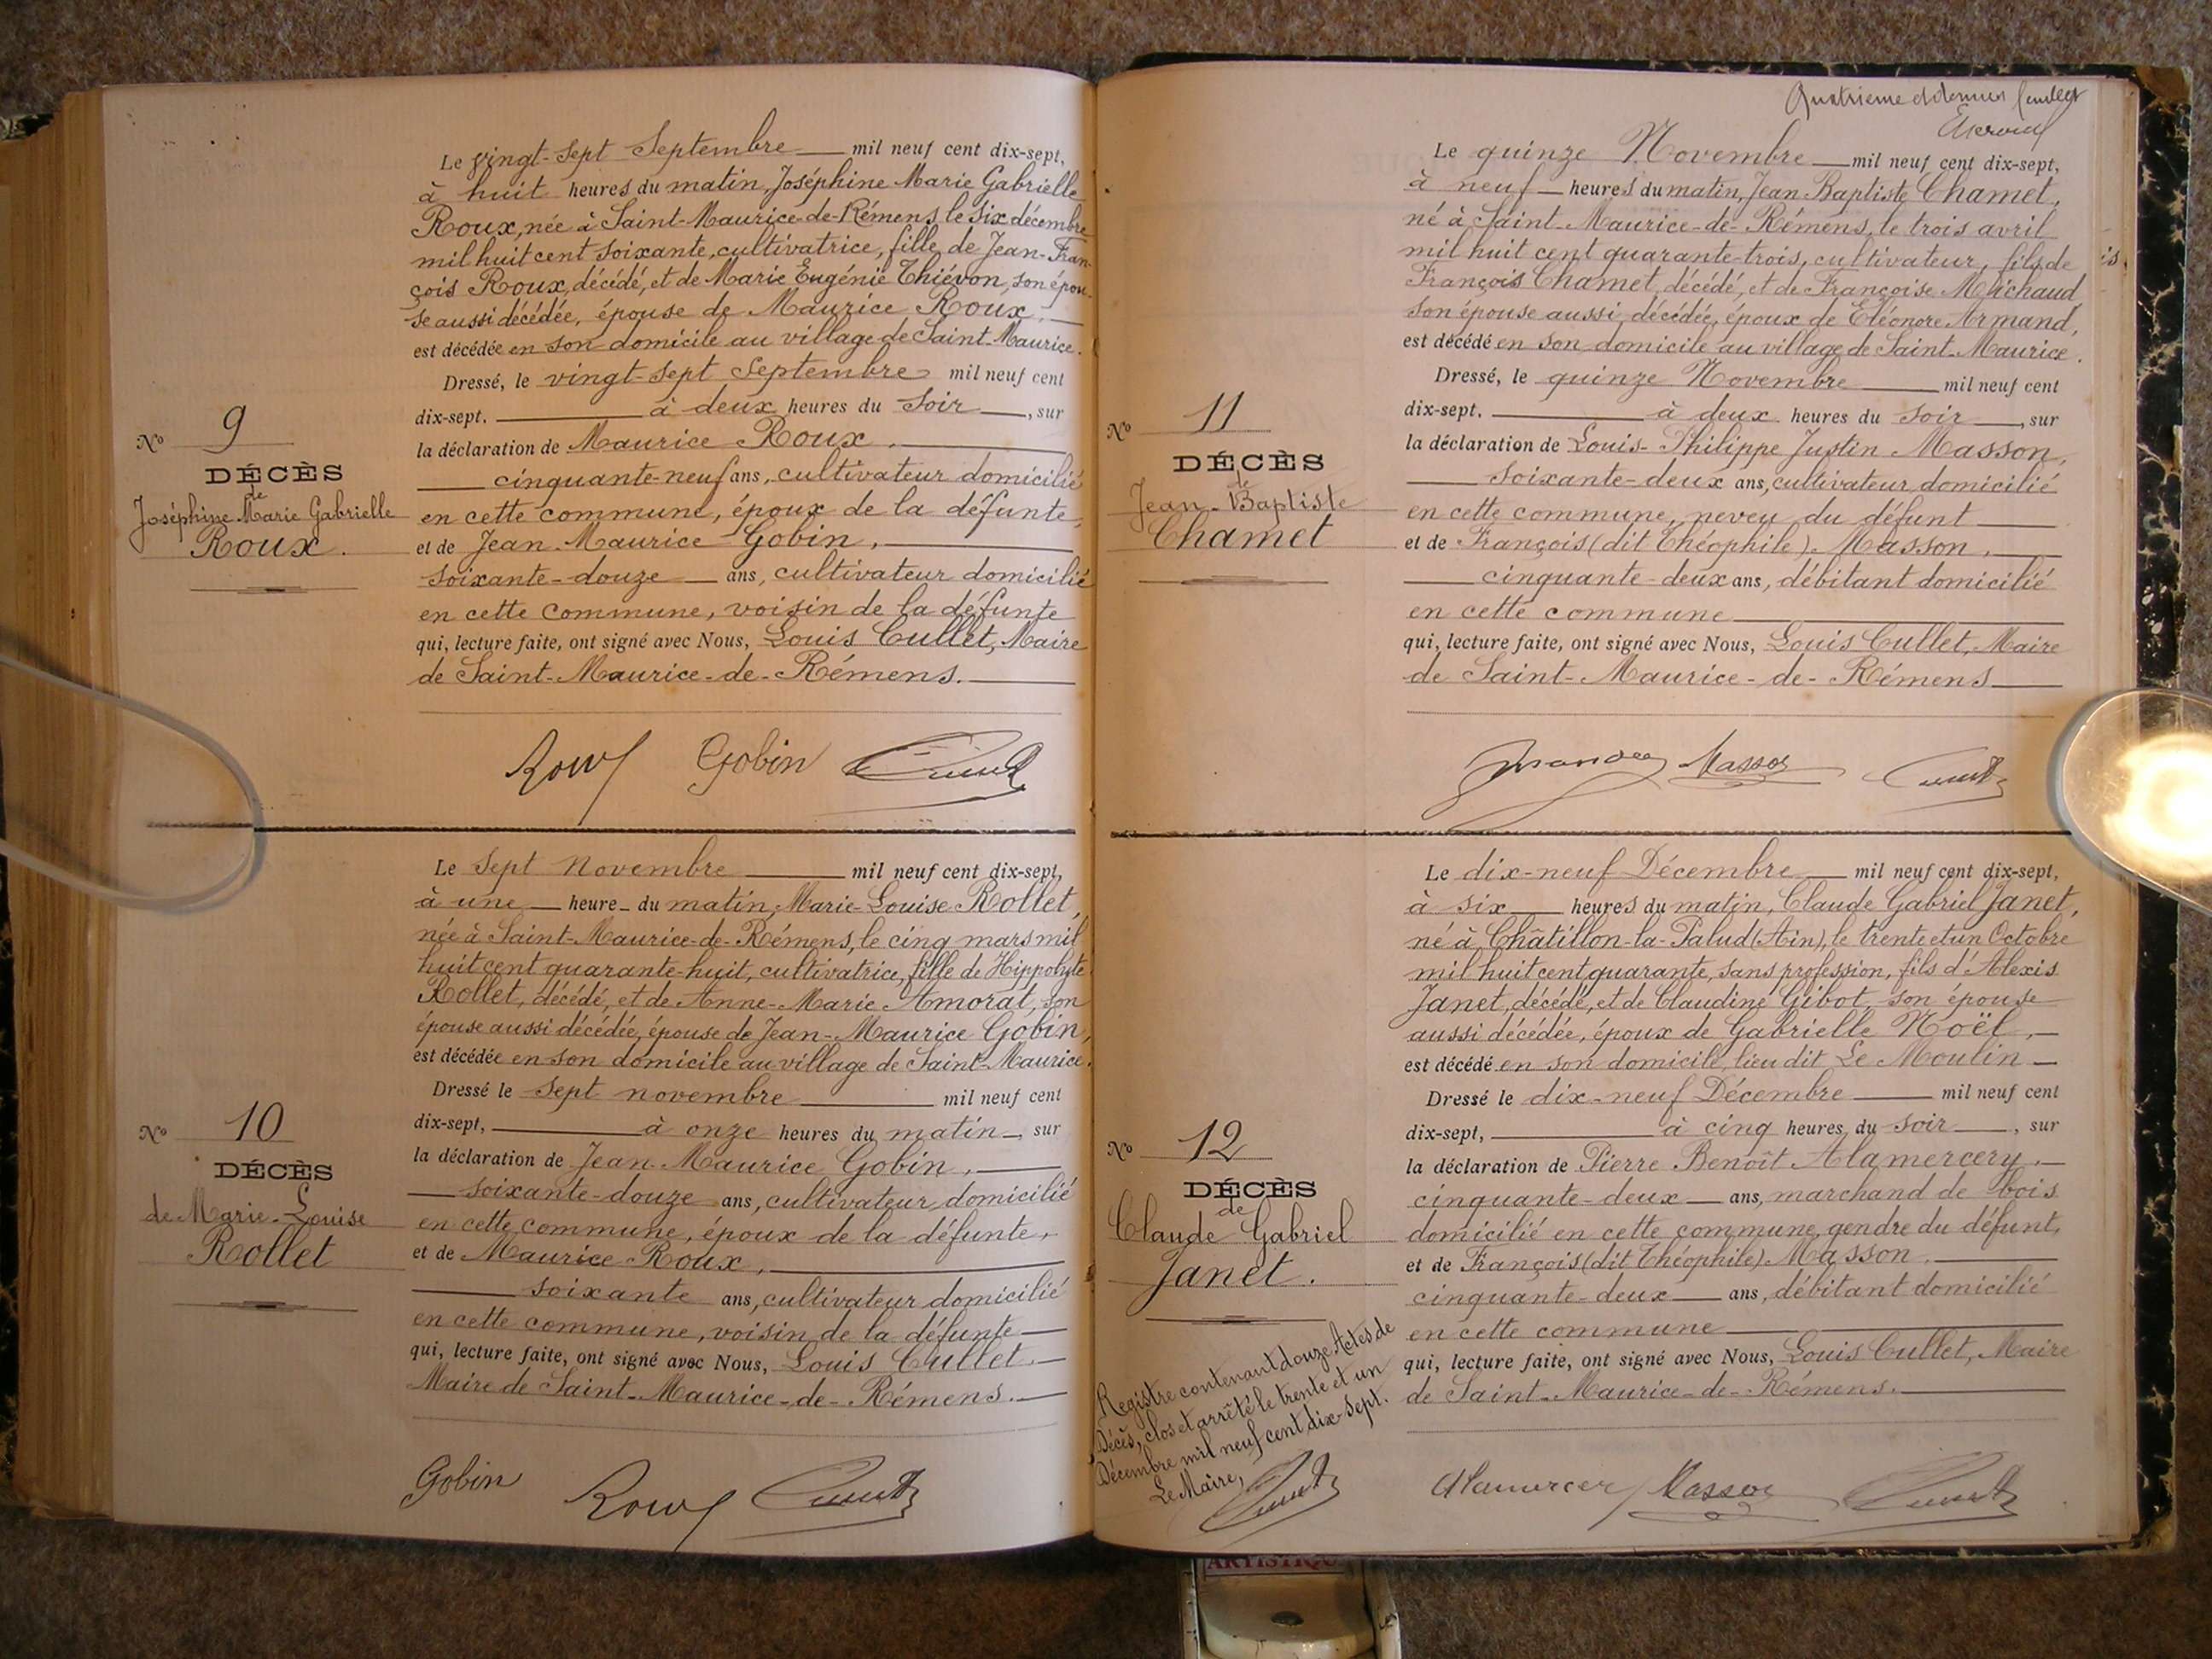 Le vingt-sept Septembre mil neuf cent dix-sept,
à huit heures du matin, Joséphine Marie Gabrielle
Roux, née à Saint-Maurice-de-Rémens, le six décembre
mil huit cent soixante, cultivatrice, fille de Jean-Fran-
çois Roux, décédé, et de Marie Eugénie Thiévon, son épou-
se aussi décédée, épouse de Maurice Roux,
est décédée en son domicile au village de Saint-Maurice.
Dressé, le vingt-sept Septembre mil neuf cent
dix-sept. à deux heures du soir, sur
la déclaration de Maurice Roux,
cinquante-neuf ans, cultivateur domicilié
en cette commune, époux de la défunte,
et de Jean-Maurice Gobin,
soixante-douze ans, cultivateur domicilié
en cette commune, voisin de la défunte
qui, lecture faite, ont signé avec Nous, Louis Cullet, Maire
de Saint-Maurice-de-Rémens.
Nº 9
DÉCÈS
de
Joséphine Marie Gabrielle
Roux.
Roux Gobin
Le sept novembre mil neuf cent dix-sept,
à une heure du matin, Marie-Louise Rollet,
née à Saint-Maurice-de-Rémens, le cinq mars mil
huit cent quarante-huit, cultivatrice, fille de Hippolyte
Rollet, décédé, et de Anne-Marie Amorat, son
épouse aussi décédée, épouse de Jean-Maurice Gobin,
est décédée en son domicile au village de Saint-Maurice.
Dressé le sept novembre mil neuf cent
dix-sept, à onze heures du matin, sur
la déclaration de Jean-Maurice Gobin,
soixante-douze ans, cultivateur domicilié
en cette commune, époux de la défunte,
et de Maurice Roux,
soixante ans, cultivateur domicilié
en cette commune, voisin de la défunte
qui, lecture faite, ont signé avec Nous, Louis Cullet,
Maire de Saint-Maurice-de-Rémens.
Nº 10
DÉCÈS
de Marie-Louise
Rollet
Gobin Roux
Quatrième et dernier feuillet
Le quinze Novembre mil neuf cent dix-sept,
à neuf heures du matin, Jean-Baptiste Chamet,
né à Saint-Maurice-de-Rémens, le trois avril
mil huit cent quarante-trois, cultivateur, fils de
François Chamet, décédé, et de Françoise Michaud
son épouse aussi décédée, époux de Eléonore Armand,
est décédé en son domicile au village de Saint-Maurice.
Dressé, le quinze Novembre mil neuf cent
dix-sept. à deux heures du soir, sur
la déclaration de Louis-Philippe Justin Masson,
soixante-deux ans, cultivateur domicilié
en cette commune, neveu du défunt
et de François (dit Théophile) Masson,
cinquante-deux ans, débitant domicilié
en cette commune
qui, lecture faite, ont signé avec Nous, Louis Cullet, Maire
de Saint-Maurice-de-Rémens
Nº 11
DÉCÈS
de
Jean-Baptiste
Chamet
Masson
Le dix-neuf Décembre mil neuf cent dix-sept,
à six heures du matin, Claude Gabriel Janet,
né à Châtillon-la-Palud (Ain), le trente et un Octobre
mil huit cent quarante, sans profession, fils d'Alexis
Janet, décédé, et de Claudine Gibot, son épouse
aussi décédée, époux de Gabrielle Noël,
est décédé en son domicile, lieu dit Le Moulin
Dressé le dix-neuf Décembre mil neuf cent
dix-sept, à cinq heures du soir, sur
la déclaration de Pierre Benoît Alamercery,
cinquante-deux ans, marchand de bois
domicilié en cette commune, gendre du défunt,
et de François (dit Théophile) Masson,
cinquante-deux ans, débitant domicilié
en cette commune
qui, lecture faite, ont signé avec Nous, Louis Cullet, Maire
de Saint-Maurice-de-Rémens.
Nº 12
DÉCÈS
de
Claude Gabriel
Janet.
Registre contenant douze Actes de
Décès, clos et arrêté le trente et un
Décembre mil neuf cent dix-sept.
Le Maire,
Alamercery Masson
ARTISTIQUE